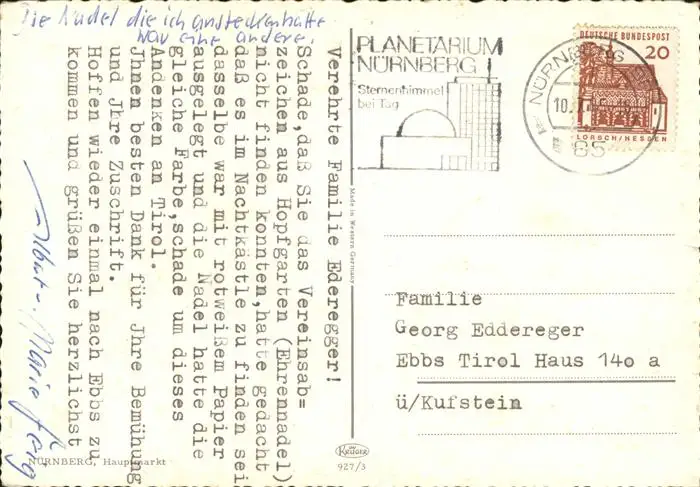 Die Nadel die ich ansteckenhatte
war eine andere.
Verehrte Familie Ederegger!
Schade,daß Sie das Vereinsab=
zeichen aus Hopfgarten (Ehrennadel)
nicht finden konnten,hatte gedacht
daß es im Nachtkästle zu finden sei
dasselbe war mit rotweißem Papier
ausgelegt und die Nadel hatte die
gleiche Farbe,schade um dieses
Andenken an Tirol.
Jhnen besten Dank für Jhre Bemühung
und Jhre Zuschrift.
Hoffen wieder einmal nach Ebbs zu
kommen und grüßen Sie herzlichst
Albert u. Marie
NÜRNBERG, Hauptmarkt
Made in Western Germany
KRÜGER
927/3
PLANETARIUM
NÜRNBERG
Sternenhimmel
bei Tag
NÜRNBERG
85
DEUTSCHE BUNDESPOST
20
LORSCH/HESSEN
Familie
Georg Eddereger
Ebbs Tirol Haus 14o a
ü/Kufstein